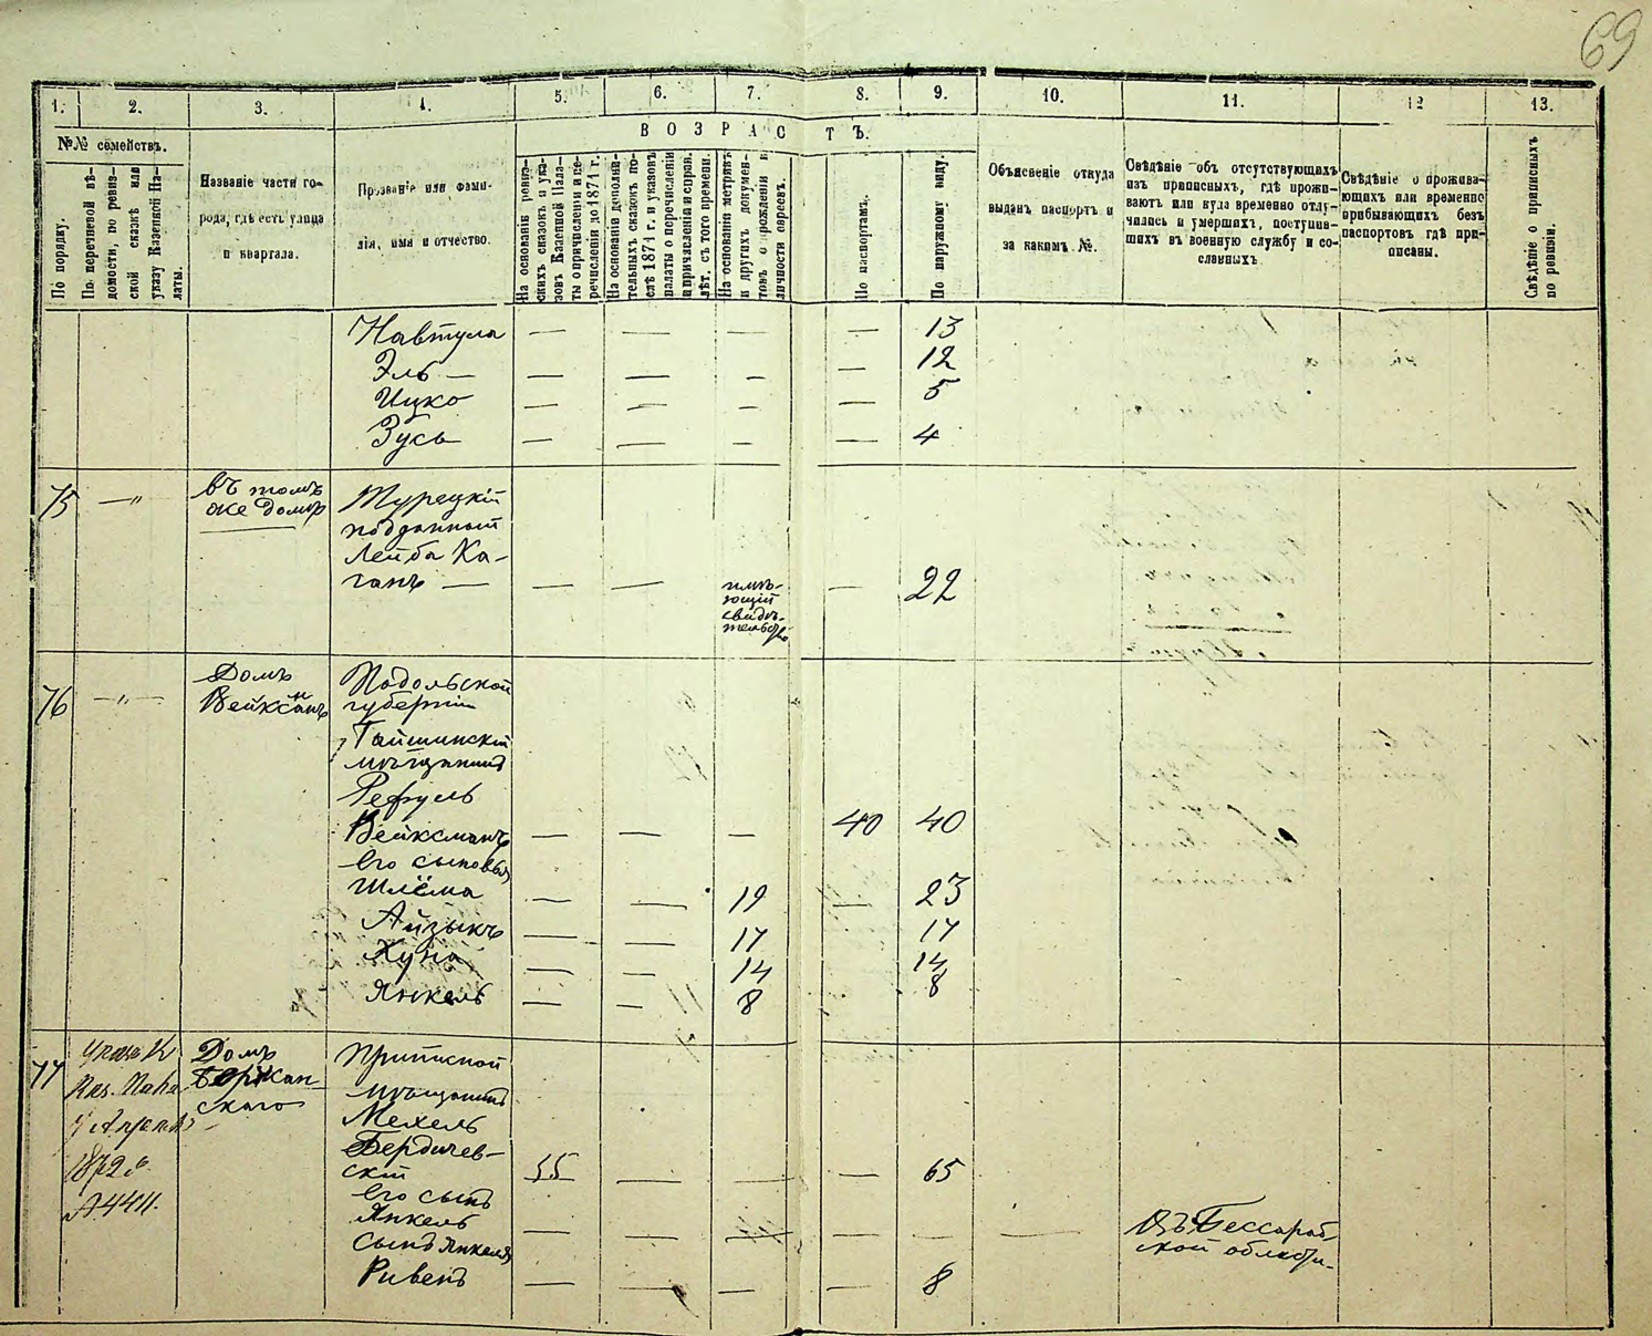 69
1. 2. 3. 4. 5. 6. 7. 8. 9. 10. 11. 12 13.
№№ семействъ.
По порядку.
По перечневой вѣ-
домости, по ревиз-
ской сказкѣ или
указу Казенной Па-
латы.
Названіе части го-
рода, гдѣ есть улица
и квартала.
Прозваніе или фами-
лія, имя и отчество.
ВОЗРАСТЪ.
На основаніи ревиз-
скихъ сказокъ и ука-
зовъ Казенной Пала-
ты о причисленіи и пе-
речисленіи до 1874 г.
На основаніи дополни-
тельныхъ сказокъ по-
слѣ 1874 г. и указовъ
палаты о перечисленіи
и причисленіи и справ.
лѣт. съ того времени.
На основаніи метрикъ
и другихъ докумен-
товъ о рожденіи и
личности евреевъ.
По паспортамъ.
По наружному виду.
Объясненіе откуда
выданъ паспортъ и
за какимъ №.
Свѣдѣніе объ отсутствующихъ
изъ приписныхъ, гдѣ прожи-
ваютъ или куда временно отлу-
чились и умершихъ, поступив-
шихъ въ военную службу и со-
сланныхъ
Свѣдѣніе о прожива-
ющихъ или временно
прибывающихъ безъ
паспортовъ гдѣ при-
писаны.
Свѣдѣніе о приписныхъ
по ревизіи.
Навтула — — — — 13
Эль — — — — — 12
Ицко — — — — 5
Зусь — — — — 4
75 —"
въ томъ
же домѣ
Турецкій
подданный
Лейба Ка-
ганъ — — —
имѣ-
ющій
свидѣ-
тельство
— 22
76 —"—
Домъ
Вейксманъ
Подольской
губерніи
Гайшинскій
мѣщанинъ
Рефуль
Вейксманъ — — — 40 40
Его сыновья
Шлёма — — 19 — 23
Айзыкъ — — 17 17
Хуна — — 14 14
Янкель — — 8 8
77
Указъ К
Каз. Пала
1872 г.
№ 4411.
Домъ
скаго
Приписной
мѣщанинъ
Мехель
Бердичев-
скій 55 — — — 65
Его сынъ
Янкель — — — — — —
Въ Бессараб-
ской области.
сынъ Янкеля
Ривенъ — — — — 8